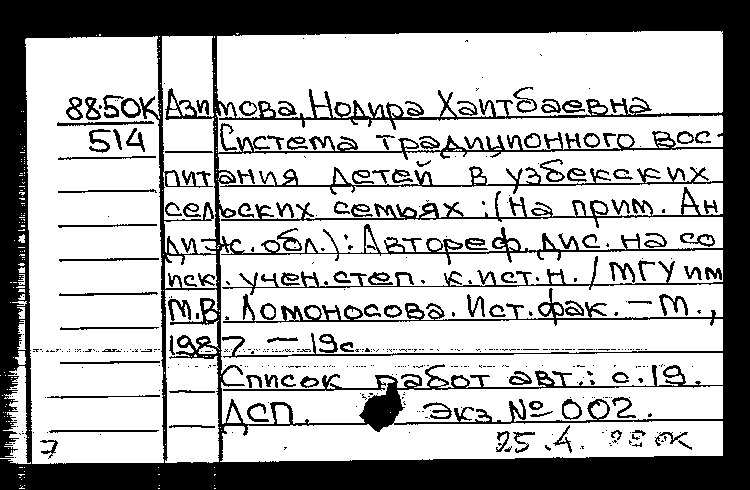 88-50К Азимова, Нодира Хаитбаевна
514 Система традиционного вос-
питания детей в узбекских
сельских семьях : (На прим. Ан
диж. обл.) : Автореф. дис. на со
иск. учен. степ. к. ист. н. / МГУ им
М.В. Ломоносова. Ист. фак. — М.,
1987. — 19с.
Список работ авт.: с. 19.
ДСП. Экз. № 002.
7 25.4.